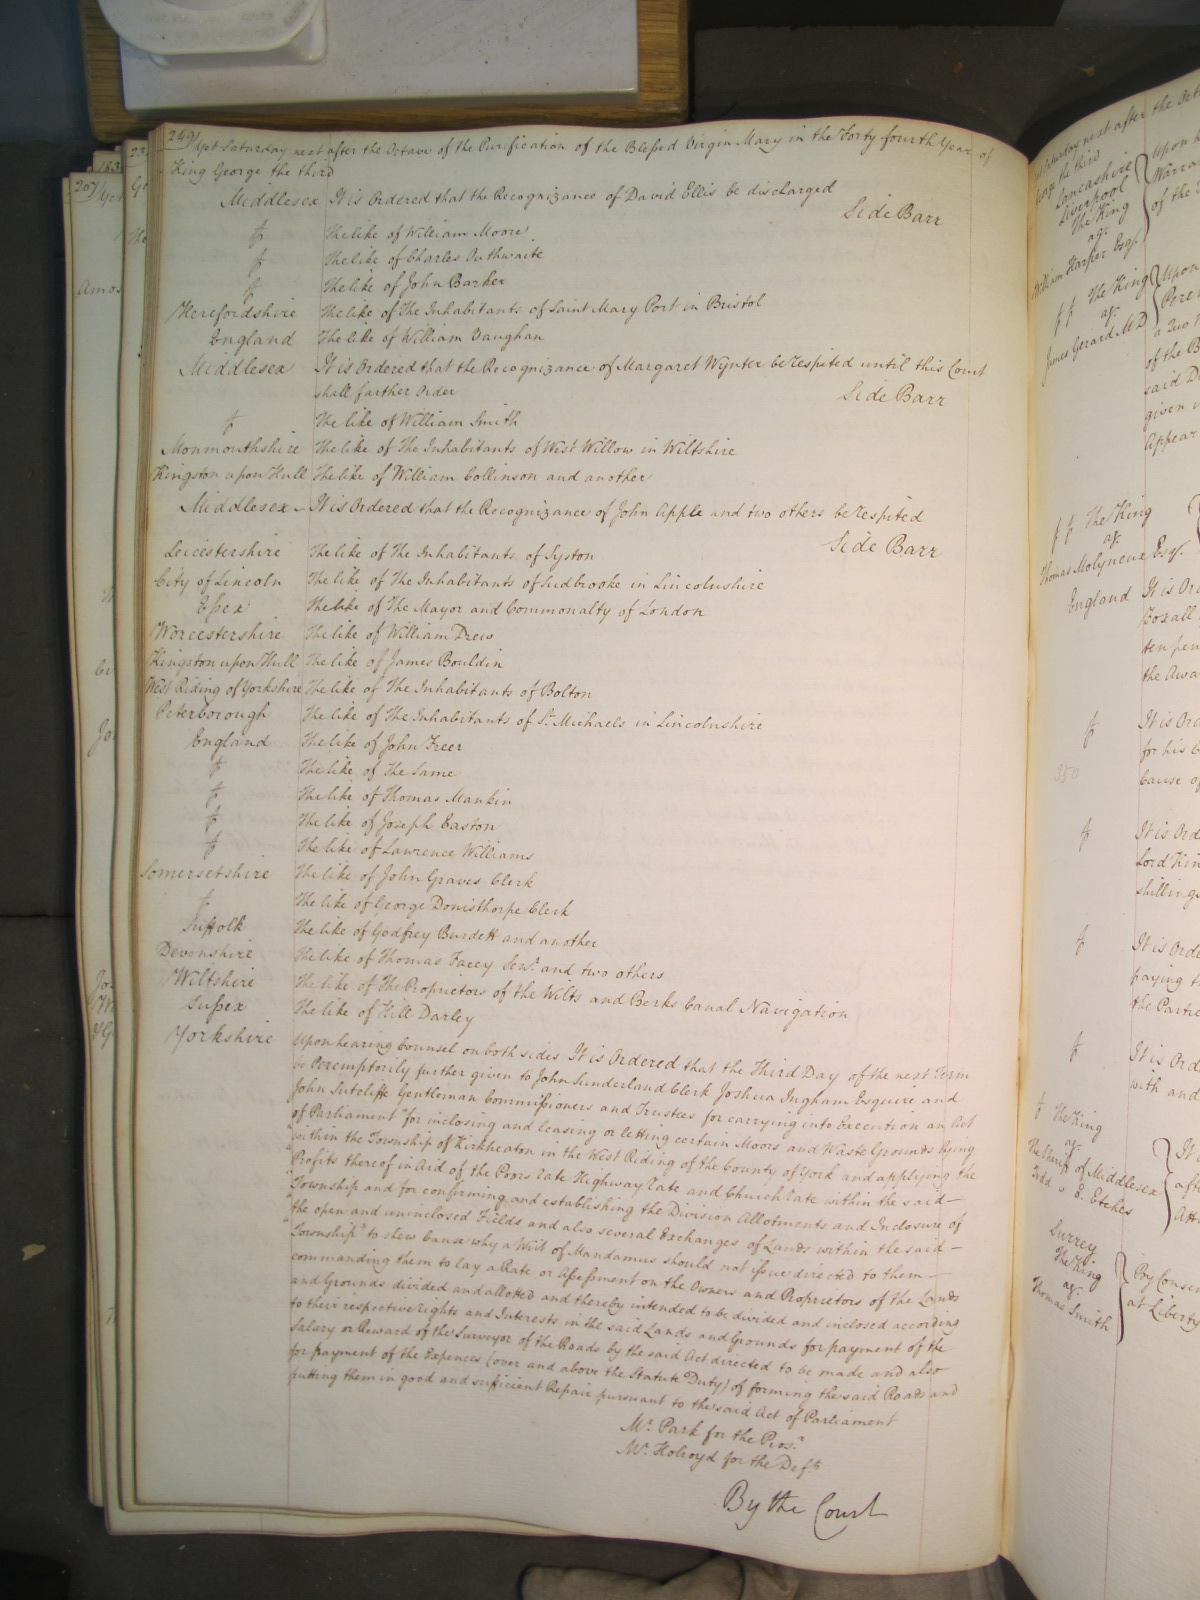 249 Yet Saturday next after the Octave of the Purification of the Blessed Virgin Mary in the Forty fourth Year of
King George the third
Middlesex It is Ordered that the Recognizance of David Ellis be discharged
Side Barr
The like of William Moore
The like of Charles Outhwaite
The like of John Barker
Herefordshire The like of The Inhabitants of Saint Mary Port in Bristol
England The like of William Vaughan
Middlesex It is Ordered that the Recognizance of Margaret Wynter be respited until this Court
shall farther Order Side Barr
The like of William Smith
Monmouthshire The like of The Inhabitants of West Willow in Wiltshire
Kingston upon Hull The like of William Collinson and another
Middlesex It is Ordered that the Recognizance of John Apple and two others be respited
Side Barr
Leicestershire The like of The Inhabitants of Syston
City of Lincoln The like of The Inhabitants of Sudbrooke in Lincolnshire
Essex The like of The Mayor and Commonalty of London
Worcestershire The like of William Drew
Kingston upon Hull The like of James Bouldin
West Riding of Yorkshire The like of The Inhabitants of Bolton
Peterborough The like of The Inhabitants of St. Michaels in Lincolnshire
England The like of John Freer
The like of The Same
The like of Thomas Mankin
The like of Joseph Easton
The like of Lawrence Williams
Somersetshire The like of John Graves Clerk
The like of George Donisthorpe Clerk
Suffolk The like of Godfrey Burdett and another
Devonshire The like of Thomas Facey Senr. and two others
Wiltshire The like of The Proprietors of the Wilts and Berks Canal Navigation
Sussex The like of Hill Darley
Yorkshire Upon hearing Counsel on both sides It is Ordered that the Third Day of the next Term
be Peremptorily further given to John Sunderland Clerk Joshua Ingham Esquire and
John Sutcliffe Gentleman Commissioners and Trustees for carrying into Execution an Act
of Parliament "for inclosing and leasing or letting certain Moors and Waste Grounds lying
"within the Township of Kirkheaton in the West Riding of the County of York and applying the
"Profits thereof in Aid of the Poors rate Highway rate and Church rate within the said
"Township and for confirming and establishing the Division Allotments and Inclosure of
"the open and uninclosed Fields and also several Exchanges of Lands within the said
"Township" to shew Cause why a Writ of Mandamus should not issue directed to them
commanding them to lay a Rate or Assessment on the Owners and Proprietors of the Lands
and Grounds divided and allotted and thereby intended to be divided and inclosed according
to their respective rights and Interests in the said Lands and Grounds for payment of the
Salary or Reward of the Surveyor of the Roads by the said Act directed to be made and also
for payment of the Expences (over and above the Statute Duty) of forming the said Roads and
putting them in good and sufficient Repair pursuant to the said Act of Parliament
Mr. Park for the Pros.r
Mr. Holroyd for the Deft.
By the Court
207
Amos
George the third
Lancashire
Liverpool
The King
agt.
William Harper Esqr.
Upon
of the
The King
agt.
James Gerard M D
Upon
of the B
said D
given
Appear
The King
agt.
Thomas Molyneux Esqr.
England It is Ord
Boxall
ten pen
the Awa
It is Ord
for his
Cause of
350
It is Orde
Lord Kin
shillings
It is Orde
paying t
the Parti
It is Ord
with and
The King
agt.
The Sheriff of Middlesex
It i
afte
Att
Surrey
The King
agt.
Thomas Smith
By Consen
at Liberty